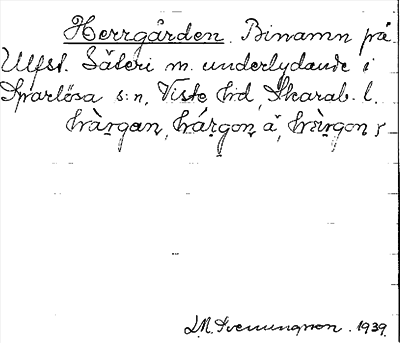 Herrgården. Binamn på
Ulfst. Säteri m. underlydande i
Sparlösa s:n, Viste hd, Skarab. l.
hàrgan, hárgon
1939.